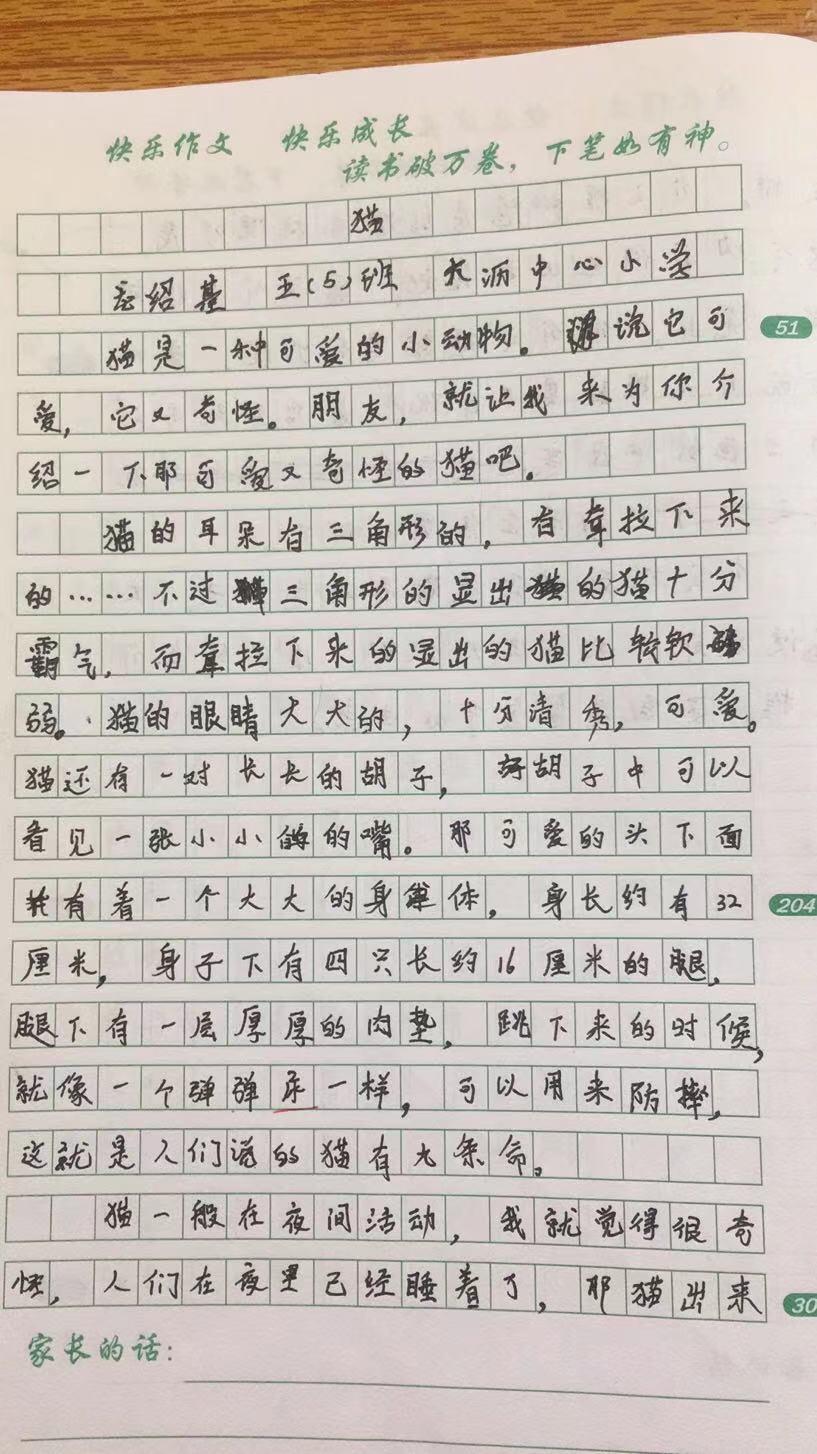 快乐作文 快乐成长
读书破万卷，下笔如有神。
猫
绍基 五(5)班 大沥中心小学
猫是一种可爱的小动物。说它可
51
爱，它又奇怪。朋友，就让我来为你介
绍一下那可爱又奇怪的猫吧。
猫的耳朵有三角形的，有耷拉下来
的……不过三角形的显出的猫十分
霸气，而耷拉下来的显出的猫比较软
弱。猫的眼睛大大的，十分清秀，可爱。
猫还有一对长长的胡子，胡子中可以
看见一张小小的嘴。那可爱的头下面
有着一个大大的身体，身长约有32
204
厘米，身子下有四只长约16厘米的腿，
腿下有一层厚厚的肉垫，跳下来的时候，
就像一个弹弹床一样，可以用来防摔，
这就是人们说的猫有九条命。
猫一般在夜间活动，我就觉得很奇
怪，人们在夜里已经睡着了，那猫出来
30
家长的话：